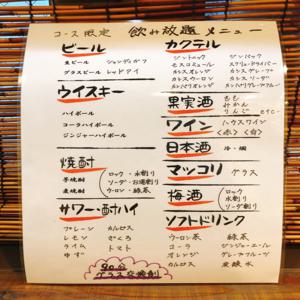 コース限定 飲み放題メニュー
ビール
生ビール シャンディガフ
グラスビール レッドアイ
ウイスキー
ハイボール
コーラハイボール
ジンジャーハイボール
焼酎
芋焼酎
麦焼酎
ロック・水割り
ソーダ・お湯割り
ウーロン・緑茶
サワー・酎ハイ
プレーン カルピス
レモン ざくろ
ライム トマト
ゆず
90分
グラス交換制
カクテル
ジントニック ジンバック
モスコミュール スクリュードライバー
カシスオレンジ カシスグレープ
カシスウーロン カシスソーダ
カンパリオレンジ カンパリソーダ
果実酒
もも
みかん
りんご
ワイン
ハウスワイン
<赤> <白>
日本酒
冷・燗
マッコリ
グラス
梅酒
ロック
水割り
ソーダ割り
ソフトドリンク
ウーロン茶 緑茶
コーラ ジンジャーエール
オレンジ グレープフルーツ
カルピス 炭酸水